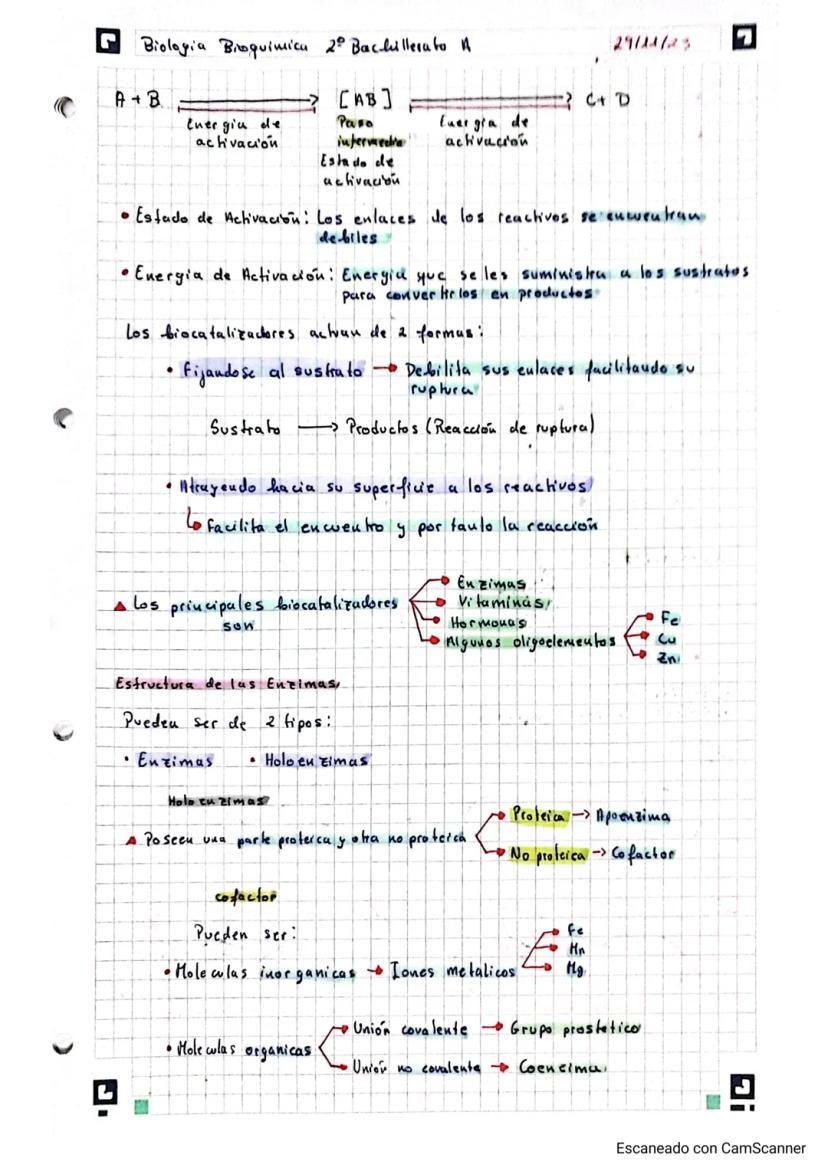 Biología Bioquimica 2º Bachillerato A 29/11/23
A + B → [AB] → C + D
Energia de activación
Paso intermedio
Estado de activación
Energia de activación
• Estado de Activación: Los enlaces de los reactivos se encuentran
debiles
• Energia de Activación: Energia que se les suministra a los sustratos
para convertirlos en productos
Los biocatalizadores actuan de 2 formas:
• Fijandose al sustrato → Debilita sus enlaces facilitando su
ruptura
Sustrato → Productos (Reacción de ruptura)
• Atrayendo hacia su superficie a los reactivos
↳ facilita el encuentro y por tanto la reacción
▲ Los principales biocatalizadores
son
Enzimas
Vitaminas
Hormonas
Algunos oligoelementos
Fe
Cu
Zn
Estructura de las Enzimas
Pueden ser de 2 tipos:
• Enzimas • Holoenzimas
Holoenzimas
▲ Poseen una parte proteica y otra no proteica
Proteica → Apoenzima
No proteica → Cofactor
cofactor
Pueden ser:
• Moleculas inorganicas → Iones metalicos
Fe
Mn
Mg
• Moleculas organicas
Unión covalente → Grupo prostetico
Unión no covalente → Coencima
Escaneado con CamScanner